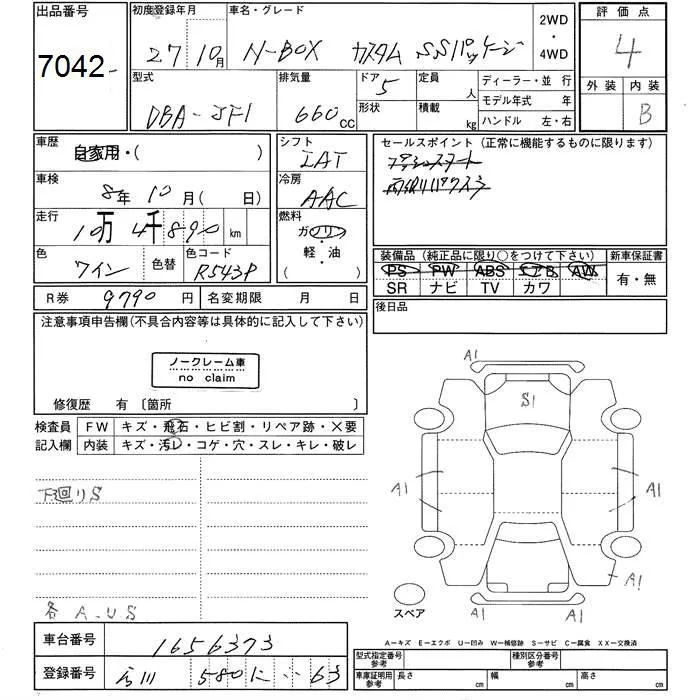 出品番号
7042
初度登録年月
27 10月
車名・グレード
N-BOX カスタム SSパッケージ
2WD
・
4WD
評価点
4
外装 内装
B
型式
DBA-JF1
排気量
660 cc
ドア 5
形状
定員 人
積載 kg
ディーラー・並 行
モデル年式 年
ハンドル 左・右
車歴
自家用・( )
車検
8年 10月( 日)
走行
10万 4千890 km
色
ワイン
色替
色コード
R543P
シフト
IAT
冷房
AAC
燃料
ガソリン
・
軽・油
( )
セールスポイント(正常に機能するものに限ります)
プッシュスタート
装備品(純正品に限り○をつけて下さい)
PS PW ABS エアB AW
SR ナビ TV カワ
新車保証書
有・無
R券 9790 円
名変期限 月 日
後日品
注意事項申告欄(不具合内容等は具体的に記入して下さい)
ノークレーム車
no claim
修復歴 有 〔箇所 〕
検査員
記入欄
FW キズ・飛石・ヒビ割・リペア跡・×要
内装 キズ・汚レ・コゲ・穴・スレ・キレ・破レ
下回りS
各 A.US
A1
S1
A1 A1
A1 A1
A1
A1 A1
スペア
A-キズ E-エクボ U-凹み W-補修跡 S-サビ C-腐食 XX-交換済
車台番号
1656373
登録番号
580 に ・・63
型式指定番号
参考
種別区分番号
参考
車庫証明用
参考
長さ cm 幅 cm 高さ cm